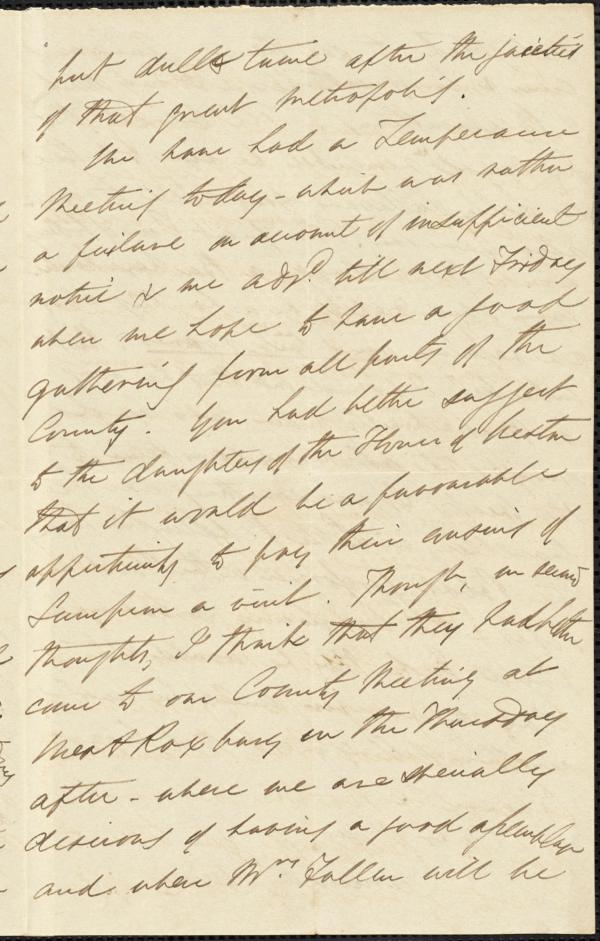 but dull time after the gaieties
of that great metropolis.
We have had a Temperance
Meeting today - which was rather
a failure on account of insufficient
notice & we adjd. till next Friday
when we hope to have a good
gathering from all parts of the
County. You had better suggest
to the daughters of the House of Weston
that it would be a favourable
opportunity to pay their cousins of
a visit. Though, on second
thoughts, I think that they had better
come to our County Meeting at
West Roxbury on the Thursday
after - where we are specially
desirous of having a good assemblage
and where Mrs. Follen will be